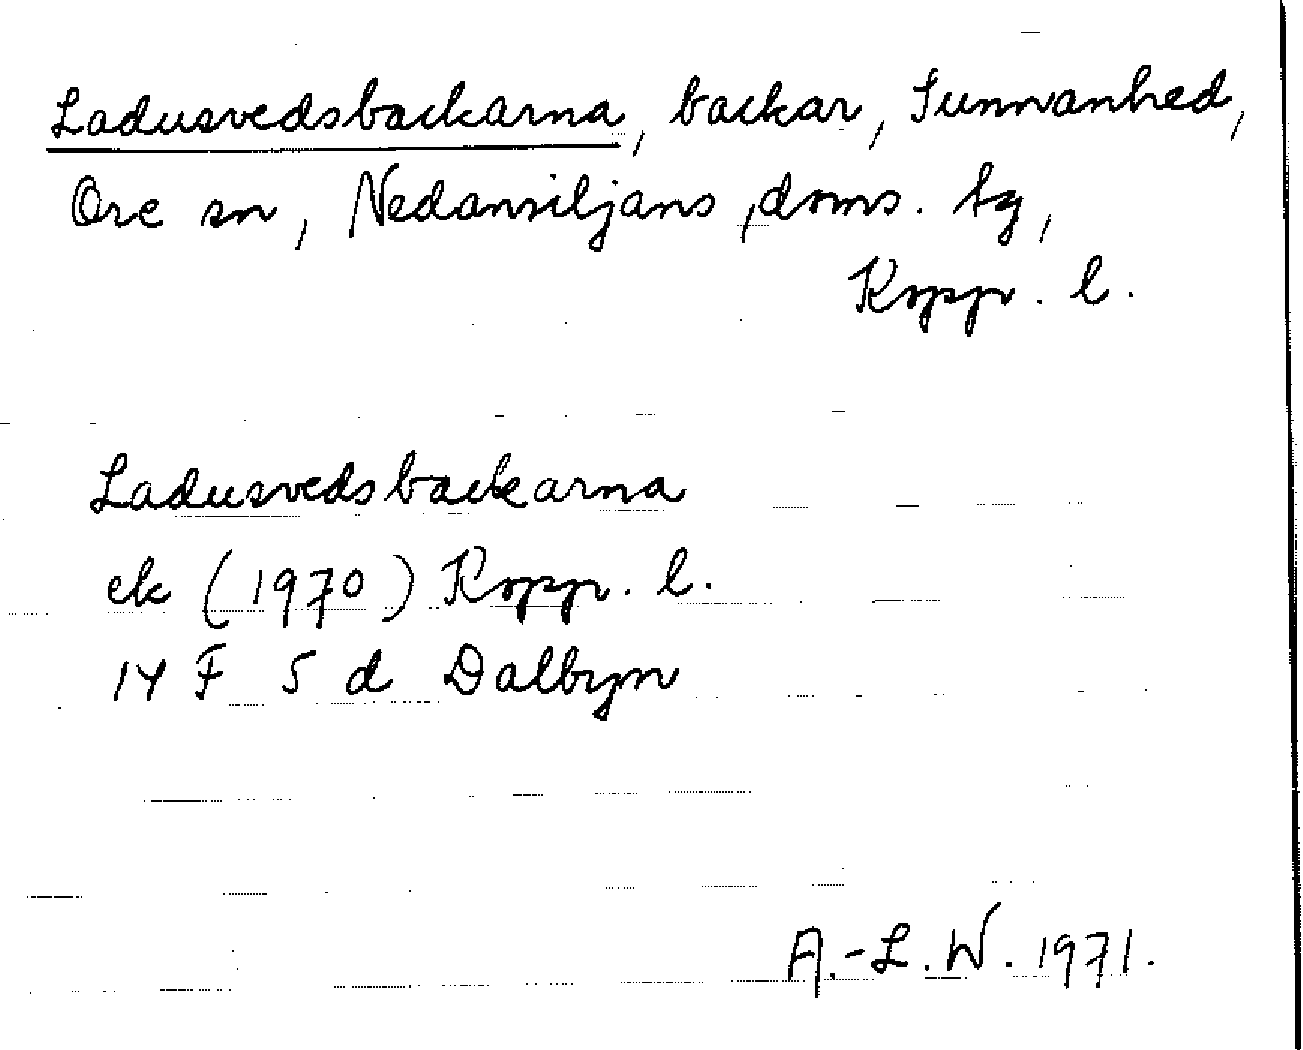 Ladusvedsbackarna, backar, Sunnanhed,
Ore sn, Nedansiljans doms. tg,
Kopp. l.
Ladusvedsbackarna
ek (1970) Kopp. l.
14 F 5 d Dalbyn
A.-L.W. 1971.